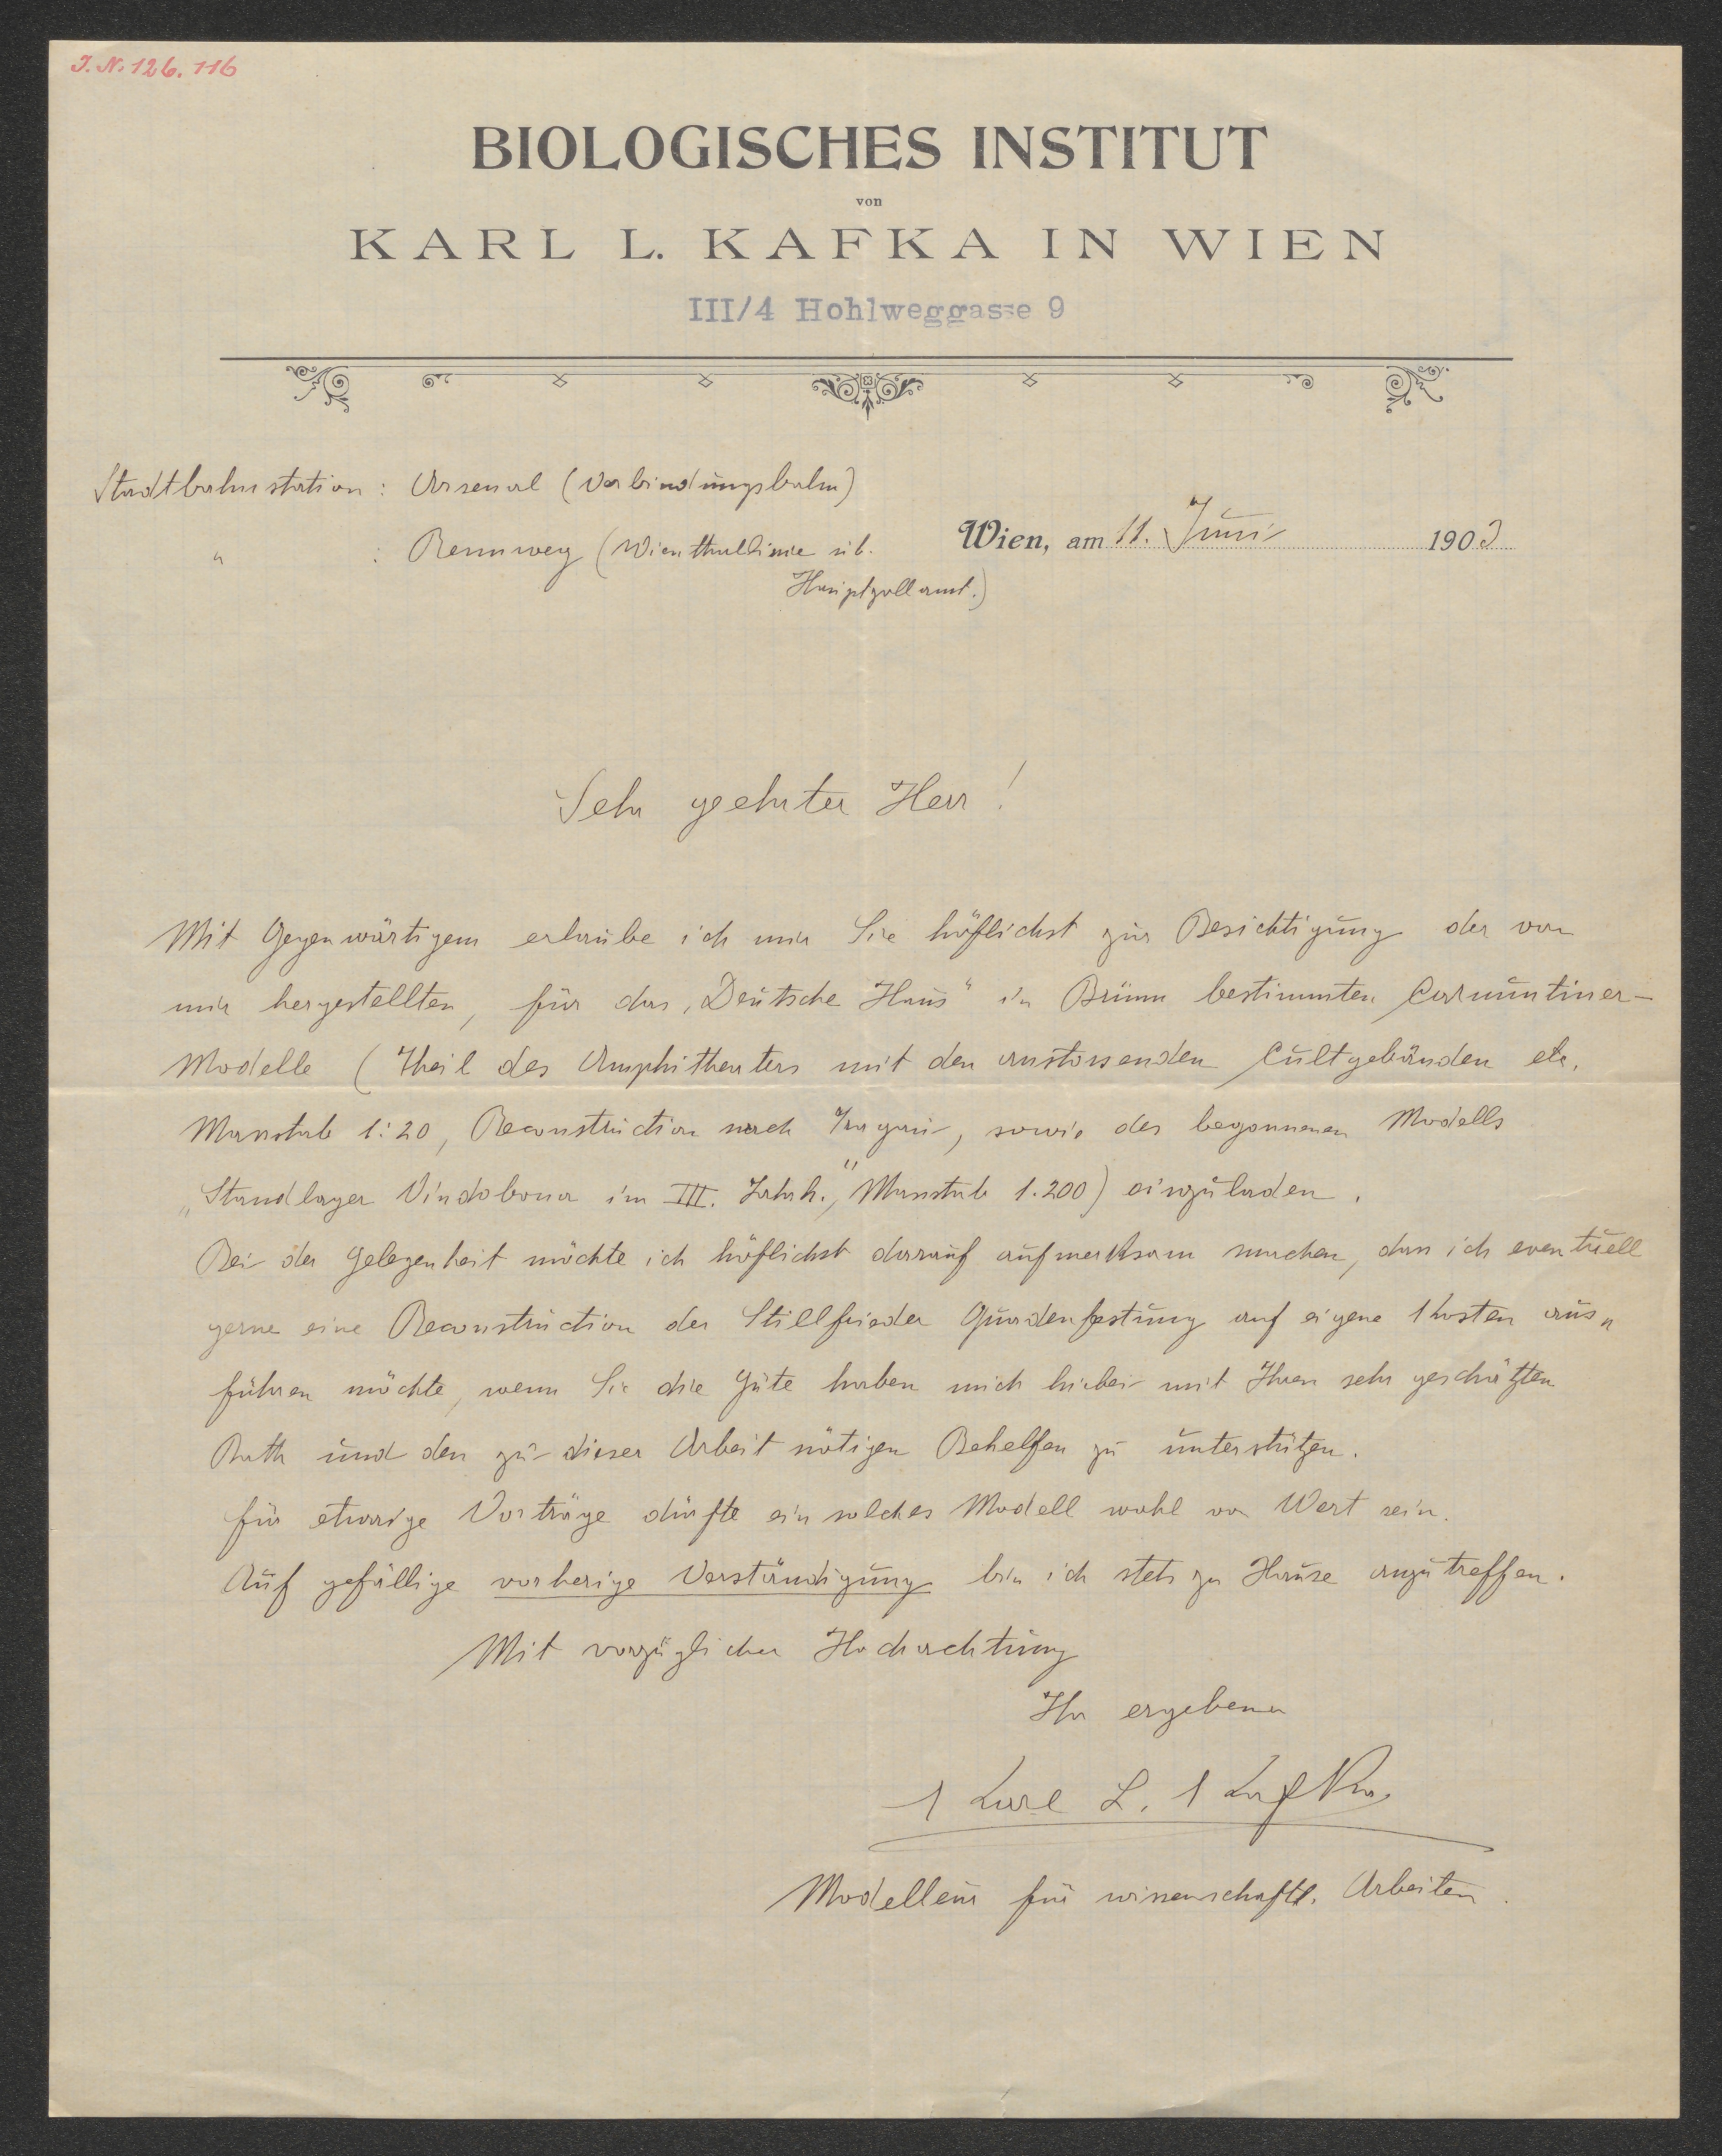 J. N. 126.116
BIOLOGISCHES INSTITUT
von
KARL L. KAFKA IN WIEN
III/4 Hohlweggasse 9
Stadtbahnstation: Arsenal (Verbindungsbahn)
" : Rennweg (Wienthallinie üb.
Hauptzollamt.)
Wien, am 11. Juni 1903
Sehr geehrter Herr!
Mit Gegenwärtigem erlaube ich mir Sie höflichst zur Besichtigung der von
mir hergestellten, für das „Deutsche Haus" in Brünn bestimmten Carnuntiner-
Modelle (Theil des Amphitheaters mit den anstossenden Cultgebäuden etc.
Massstab 1:20, Reconstruction nach Tragau, sowie des begonnenen Modells
„Standlager Vindobona im III. Jahrh.," Massstab 1:200) einzuladen.
Bei der Gelegenheit möchte ich höflichst darauf aufmerksam machen, dass ich eventuell
gerne eine Reconstruction der Stillfrieder Quadenfestung auf eigene Kosten aus„
führen möchte, wenn Sie die Güte haben mich hiebei mit Ihren sehr geschätzten
Rath und den zu dieser Arbeit nötigen Behelfen zu unterstützen.
für etwaige Vorträge dürfte ein solches Modell wohl von Wert sein.
Auf gefällige vorherige Verständigung bin ich stets zu Hause anzutreffen.
Mit vorzüglicher Hochachtung
Ihr ergebener
Karl L. Kafka
Modelleur für wissenschaftl. Arbeiten.